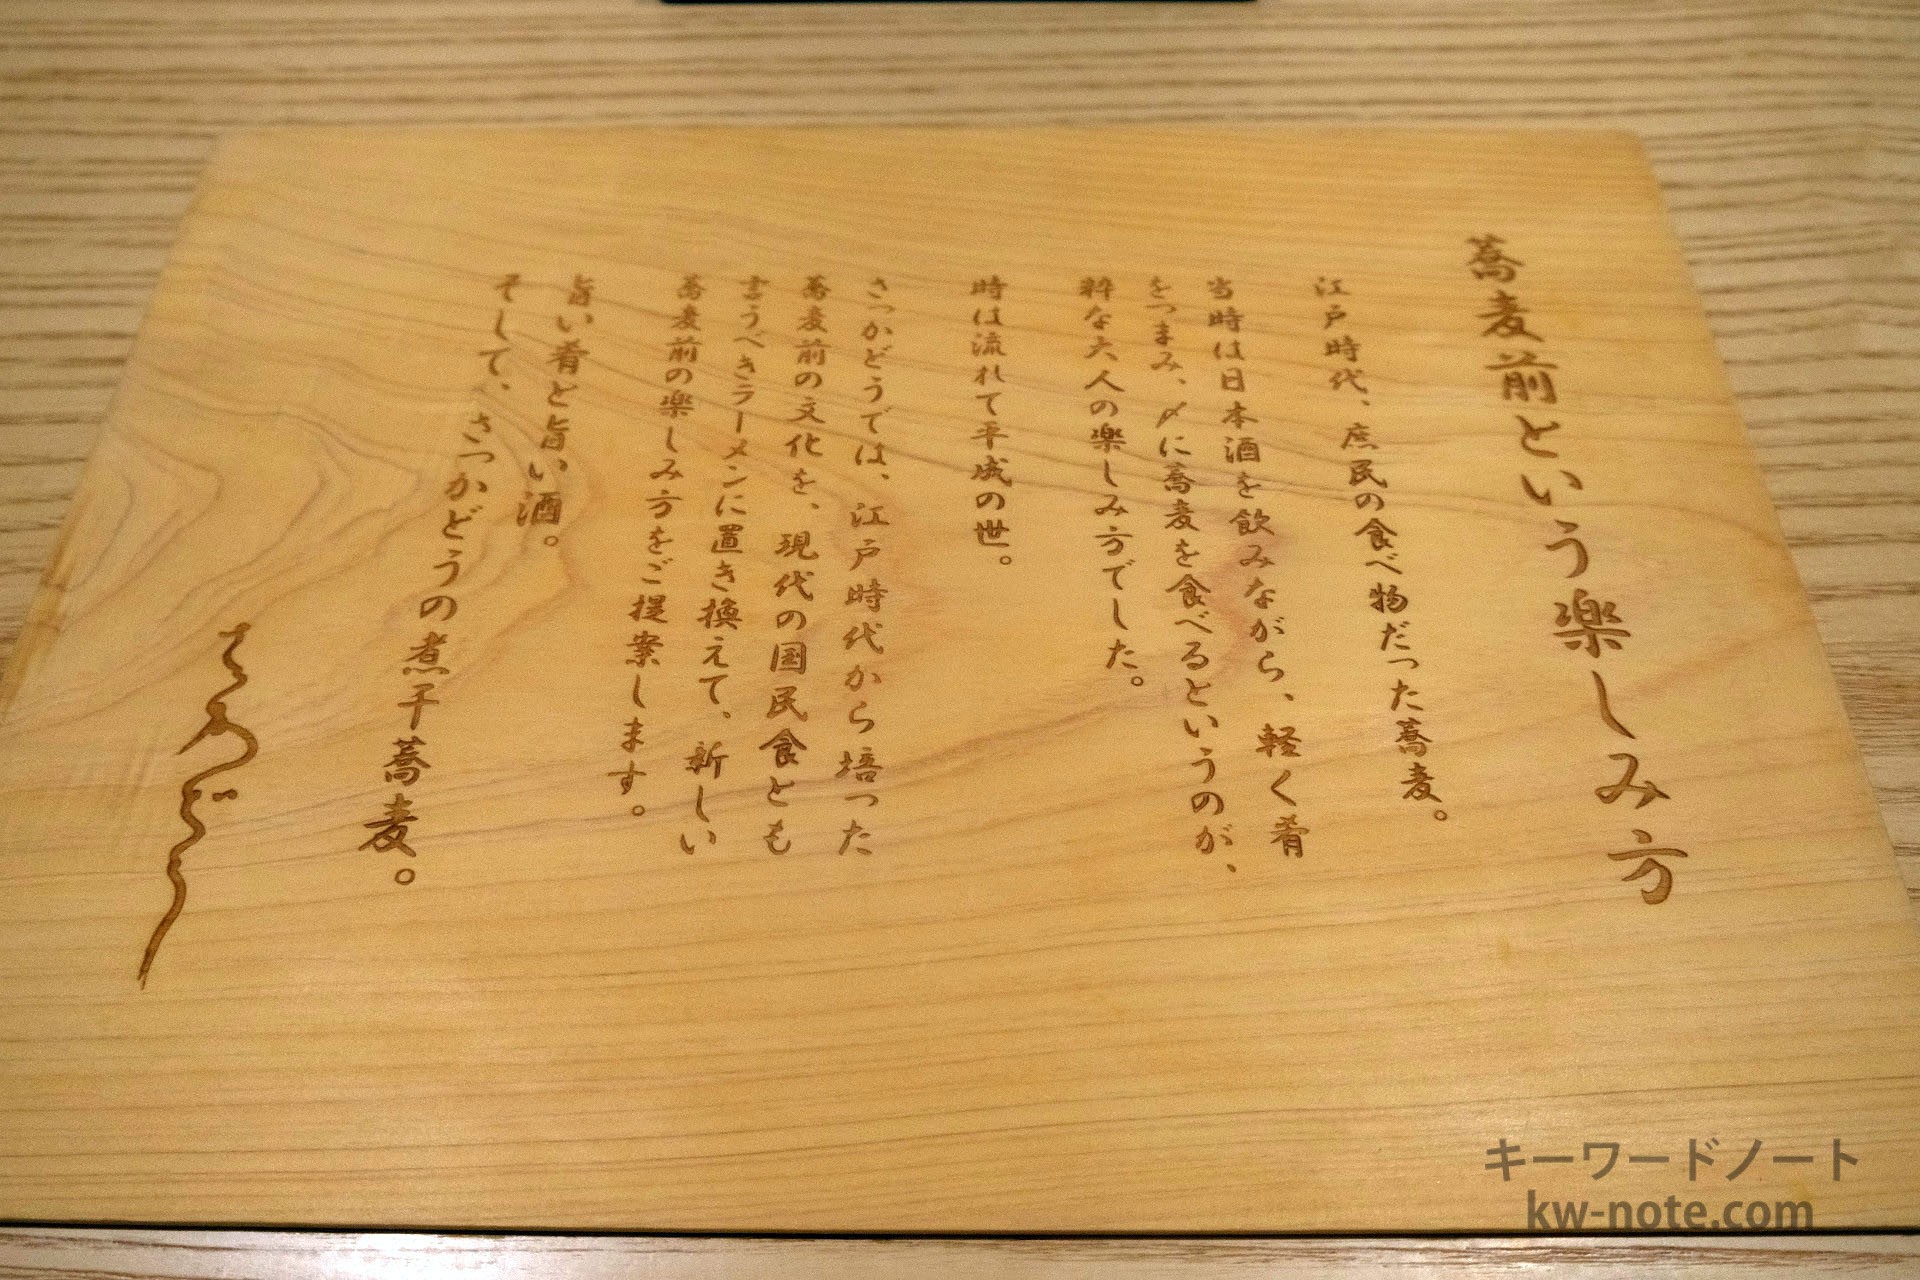 蕎麦前という楽しみ方
江戸時代、庶民の食べ物だった蕎麦。
当時は日本酒を飲みながら、軽く肴
をつまみ、〆に蕎麦を食べるというのが、
粋な大人の楽しみ方でした。
時は流れて平成の世。
さっかどうでは、江戸時代から培った
蕎麦前の文化を、現代の国民食とも
言うべきラーメンに置き換えて、新しい
蕎麦前の楽しみ方をご提案します。
旨い肴と旨い酒。
そして、さっかどうの煮干蕎麦。
キーワードノート
kw-note.com